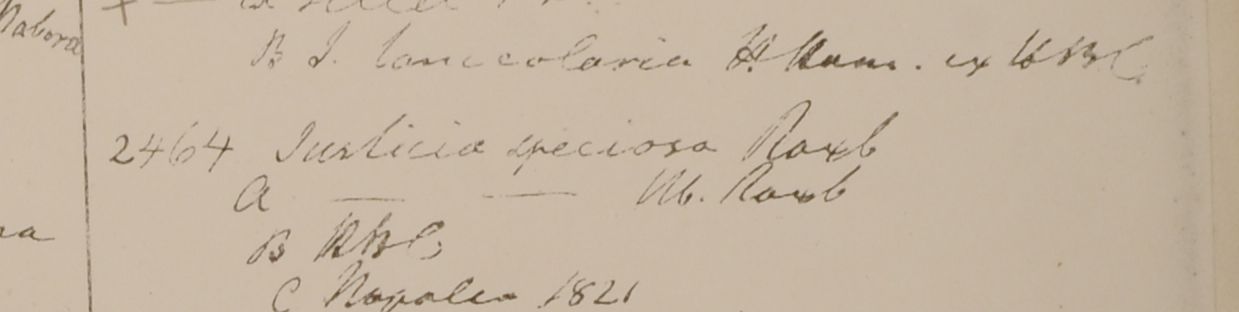 Nabora
B J. lanceolaria H. Ham. ex HBC
2464 Justicia speciosa Roxb
A — — Hb. Roxb
B HBC
na
C Napalia 1821